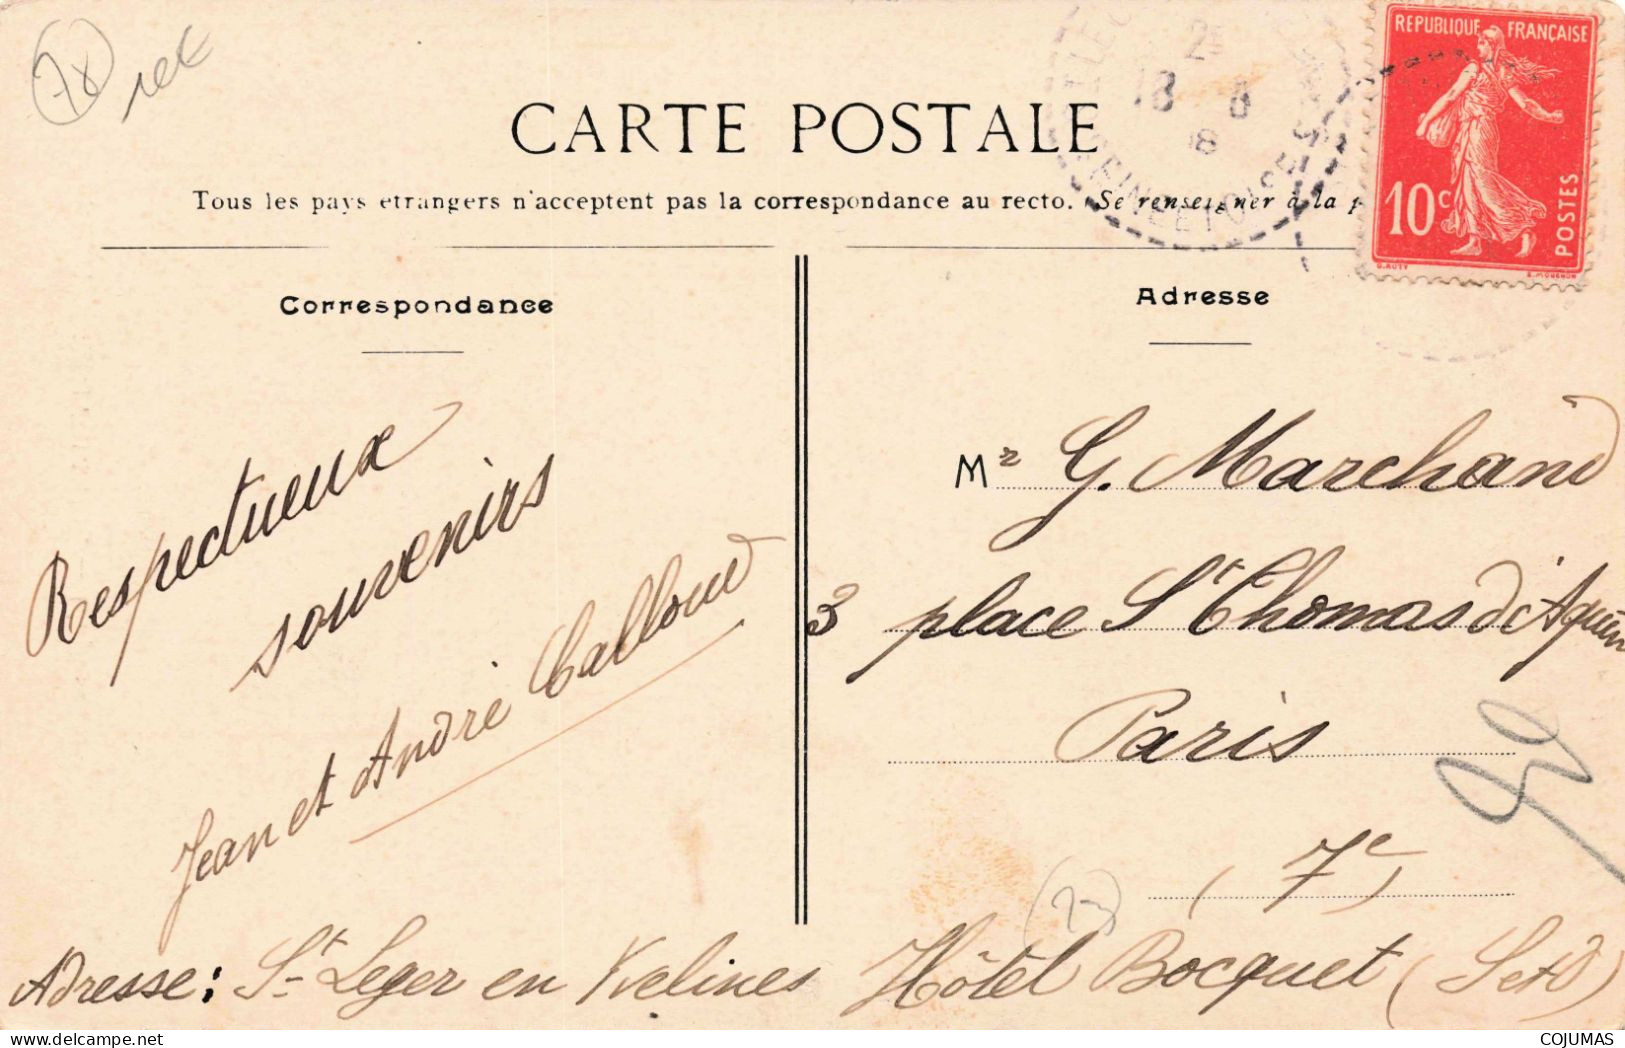 78
REPUBLIQUE FRANÇAISE
10c
POSTES
CARTE POSTALE
Tous les pays etrangers n'acceptent pas la correspondance au recto. Se renseigner à la p
SEINE ET OISE
18 8
Correspondance
Adresse
Respectueux
souvenirs
Jean et André Calloud
Mr G. Marchand
3 place St Thomas d'Aquin
Paris
(7e)
Adresse: St Leger en Yvelines Hôtel Bocquet (S et O)
COJUMAS